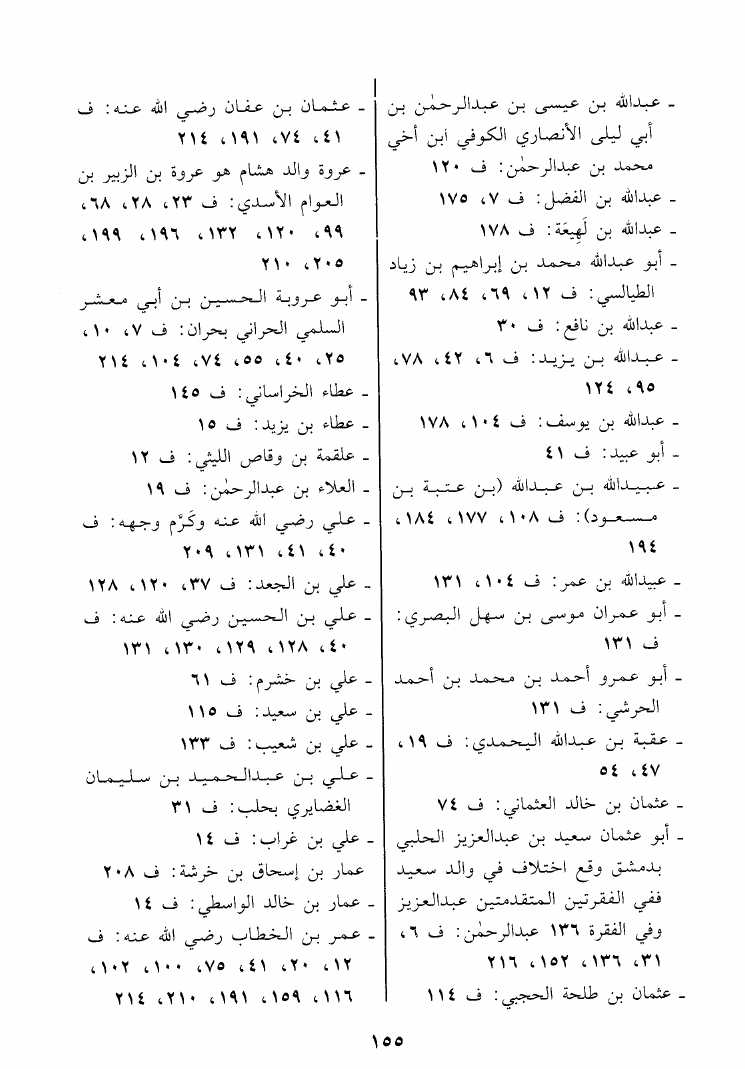 ـ عبدالله بن عيسى بن عبدالرحمٰن بن
أبي ليلى الأنصاري الكوفي ابن أخي
محمد بن عبدالرحمٰن: ف ١٢٠
ـ عبدالله بن الفضل: ف ٧، ١٧٥
ـ عبدالله بن لَهِيعَة: ف ١٧٨
ـ أبو عبدالله محمد بن إبراهيم بن زياد
الطيالسي: ف ١٢، ٦٩، ٨٤، ٩٣
ـ عبدالله بن نافع: ف ٣٠
ـ عبدالله بن يزيد: ف ٦، ٤٢، ٧٨،
٩٥، ١٢٤
ـ عبدالله بن يوسف: ف ١٠٤، ١٧٨
ـ أبو عبيد: ف ٤١
ـ عبيدالله بن عبدالله (بن عتبة بن
مسعود): ف ١٠٨، ١٧٧، ١٨٤،
١٩٤
ـ عبيدالله بن عمر: ف ١٠٤، ١٣١
ـ أبو عمران موسى بن سهل البصري:
ف ١٣١
ـ أبو عمرو أحمد بن محمد بن أحمد
الحرشي: ف ١٣١
ـ عقبة بن عبدالله اليحمدي: ف ١٩،
٤٧، ٥٤
ـ عثمان بن خالد العثماني: ف ٧٤
ـ أبو عثمان سعيد بن عبدالعزيز الحلبي
بدمشق وقع اختلاف في والد سعيد
ففي الفقرتين المتقدمتين عبدالعزيز
وفي الفقرة ١٣٦ عبدالرحمٰن: ف ٦،
٣١، ١٣٦، ١٥٢، ٢١٦
ـ عثمان بن طلحة الحجبي: ف ١١٤
ـ عثمان بن عفان رضي الله عنه: ف
٤١، ٧٤، ١٩١، ٢١٤
ـ عروة والد هشام هو عروة بن الزبير بن
العوام الأسدي: ف ٢٣، ٢٨، ٦٨،
٩٩، ١٢٠، ١٣٢، ١٩٦، ١٩٩،
٢٠٥، ٢١٠
ـ أبو عروبة الحسين بن أبي معشر
السلمي الحراني بحران: ف ٧، ١٠،
٢٥، ٤٠، ٥٥، ٧٤، ١٠٤، ٢١٤
ـ عطاء الخراساني: ف ١٤٥
ـ عطاء بن يزيد: ف ١٥
ـ علقمة بن وقاص الليثي: ف ١٢
ـ العلاء بن عبدالرحمٰن: ف ١٩
ـ علي رضي الله عنه وكَرَّم وجهه: ف
٤٠، ٤١، ١٣١، ٢٠٩
ـ علي بن الجعد: ف ٣٧، ١٢٠، ١٢٨
ـ علي بن الحسين رضي الله عنه: ف
٤٠، ١٢٨، ١٢٩، ١٣٠، ١٣١
ـ علي بن خشرم: ف ٦١
ـ علي بن سعيد: ف ١١٥
ـ علي بن شعيب: ف ١٣٣
ـ علي بن عبدالحميد بن سليمان
الغضايري بحلب: ف ٣١
ـ علي بن غراب: ف ١٤
عمار بن إسحاق بن خرشة: ف ٢٠٨
ـ عمار بن خالد الواسطي: ف ١٤
ـ عمر بن الخطاب رضي الله عنه: ف
١٢، ٢٠، ٤١، ٧٥، ١٠٠، ١٠٢،
١١٦، ١٥٩، ١٩١، ٢١٠، ٢١٤
١٥٥